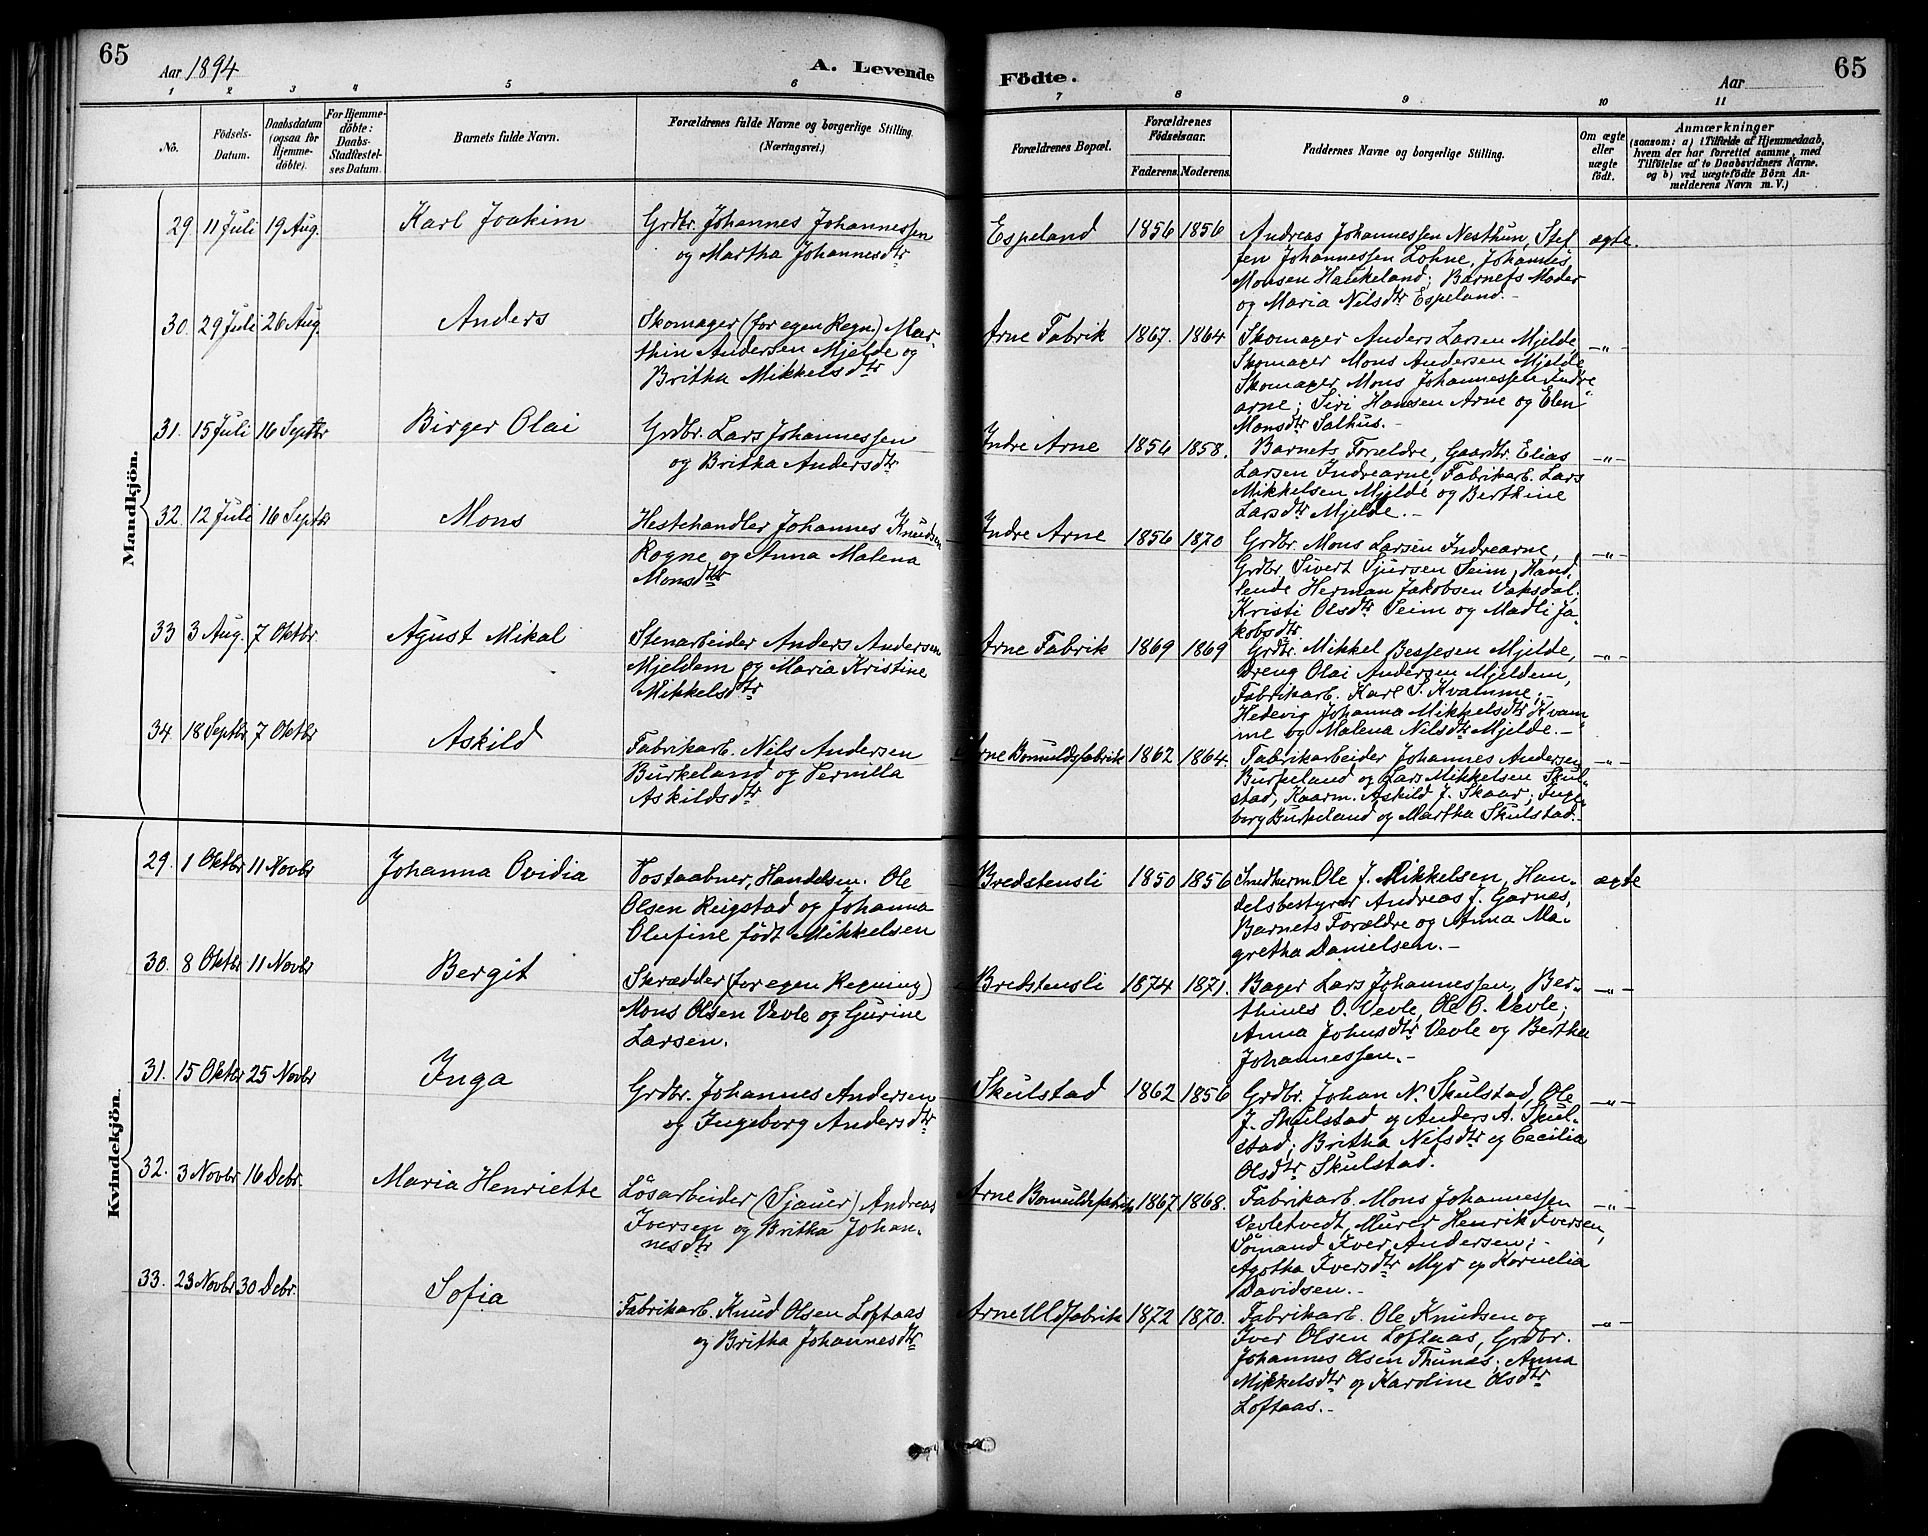 65
Aar 1894
A. Levende
1 2 3 4 5 6
No.
Födsels-
Datum.
Daabsdatum
(ogsaa for
Hjemme-
döbte).
For Hjemme-
döbte:
Daabs-
Stadfæstel-
ses Datum.
Barnets fulde Navn.
Forældrenes fulde Navne og borgerlige Stilling.
(Næringsvei.)
Födte.
Aar
65
7 8 9 10 11
Forældrenes Bopæl.
Forældrenes
Födselsaar.
Faderens. Moderens.
Faddernes Navne og borgerlige Stilling.
Om ægte
eller
uægte
födt.
Anmærkninger
(saasom: a) i Tilfælde af Hjemmedaab,
hvem der har forrettet samme, med
Tilföielse af to Daabsvidners Navne.
og b) ved uægtefödte Börn An-
melderens Navn m. V.)
Mandkjön.
29 11 Juli 19 Aug. Karl Joakim
Grdbr. Johannes Johannessen
og Martha Johannesdtr
Espeland 1856 1856
Andreas Johannessen Nesthun, Stef-
fen Johannessen Lohne, Johannes
Monsen Haukeland; Barnets Moder
og Maria Nilsdtr Espeland.-
ægte.
30. 29 Juli 26 Aug. Anders
Skomager (for egen Regn.) Mar-
thin Andersen Mjelde og
Britha Mikkelsdtr
Arne Fabrik 1867. 1864
Skomager Anders Larsen Mjelde,
Skomager Mons Andersen Mjelde
Skomager Mons Johannessen Indre
arne; Siri Hansen Arne og Elen
Monsdtr Salhus.-
-"-
31. 15 Juli 16 Septbr Birger Olai
Grdbr. Lars Johannessen
og Britha Andersdtr
Indre Arne 1856 1858.
Barnets Forældre, Gaardbr. Elias
Larsen Indrearne, Fabrikarb. Lars
Mikkelsen Mjelde og Berthine
Larsdtr Mjelde.-
-"-
32. 12 Juli 16 Septbr Mons
Hestehandler Johannes Knudsen
Rogne og Anna Malena
Monsdtr
Indre Arne 1856 1870
Grdbr. Mons Larsen Indrearne,
Grdbr Sivert Sjursen Seim, Hand-
lende Herman Jakobsen Vaksdal,
Kristi Olsdtr Seim og Madli Ja-
kobsdtr
-"-
33 3 Aug. 7 Oktbr. Agust Mikal
Stenarbeider Anders Andersen
Mjeldem og Maria Kristine
Mikkelsdtr
Arne Fabrik 1869 1869
Grdbr. Mikkel Bessesen Mjelde,
Dreng Olai Andersen Mjeldem,
Fabrikarb. Karl S. Kvamme;-
Hedevig Johanna Mikkelsdtr Kvam-
me og Malena Nilsdtr Mjelde.-
-"-
34. 18 Septbr 7 Oktbr Askild
Fabrikarb. Nils Andersen
Burkeland og Pernilla
Askildsdtr
Arne Bomuldsfabrik 1862 1864.
Fabrikarbeider Johannes Andersen
Burkeland og Lars Mikkelsen Skul-
stad, Kaarm. Askild J. Skaar; Inge-
borg Burkeland og Martha Skulstad.-
-"-
Kvindekjön.
29. 1 Oktbr 11 Novbr Johanna Ovidia
Postaabner, Handelsm. Ole
Olsen Reigstad og Johanna
Olufine født Mikkelsen
Bredstensli 1850 1856
Smedherm. Ole J. Mikkelsen, Han-
delsbestyrer Andreas J. Garnæs,
Barnets Forældre og Anna Ma-
gretha Danielsen.-
ægte
30. 8 Oktbr 11 Novbr Bergit
Skrædder (for egen Regning)
Mons Olsen Vevle og Gurine
Larsen.
Bredstensli 1874 1871.
Bager Lars Johannessen, Ber-
thines O. Vevle, Ole O. Vevle;
Anna Johnsdtr Vevle og Bertha
Johannessen.-
-"-
31. 15 Oktbr 25 Novbr Inga
Grdbr. Johannes Andersen
og Ingeborg Andersdtr
Skulstad 1862 1856
Grdbr. Johan N. Skulstad, Ole
J. Skulstad og Anders A. Skul-
stad; Britha Nilsdtr og Cecilia
Olsdtr Skulstad.
-"-
32. 3 Novbr 16 Debr. Maria Henriette
Lösarbeider (Sjauer) Andreas
Iversen og Britha Johan-
nesdtr
Arne Bomuldsfabrik 1867 1868.
Fabrikarb. Mons Johannessen
Vevletvedt, Murer Henrik Iversen,
Sömand Iver Andersen;-
Agotha Iversdtr Myr og Kornelia
Davidsen.-
-"-
33. 23 Novbr 30 Debr. Sofia
Fabrikarb. Knud Olsen Loftaas
og Britha Johannesdtr
Arne Uldfabrik 1872 1870.
Fabrikarb. Ole Knudsen og
Iver Olsen Loftaas, Grdbr.
Johannes Olsen Thunæs; Anna
Mikkelsdtr og Karoline Olsdtr
Loftaas.-
-"-